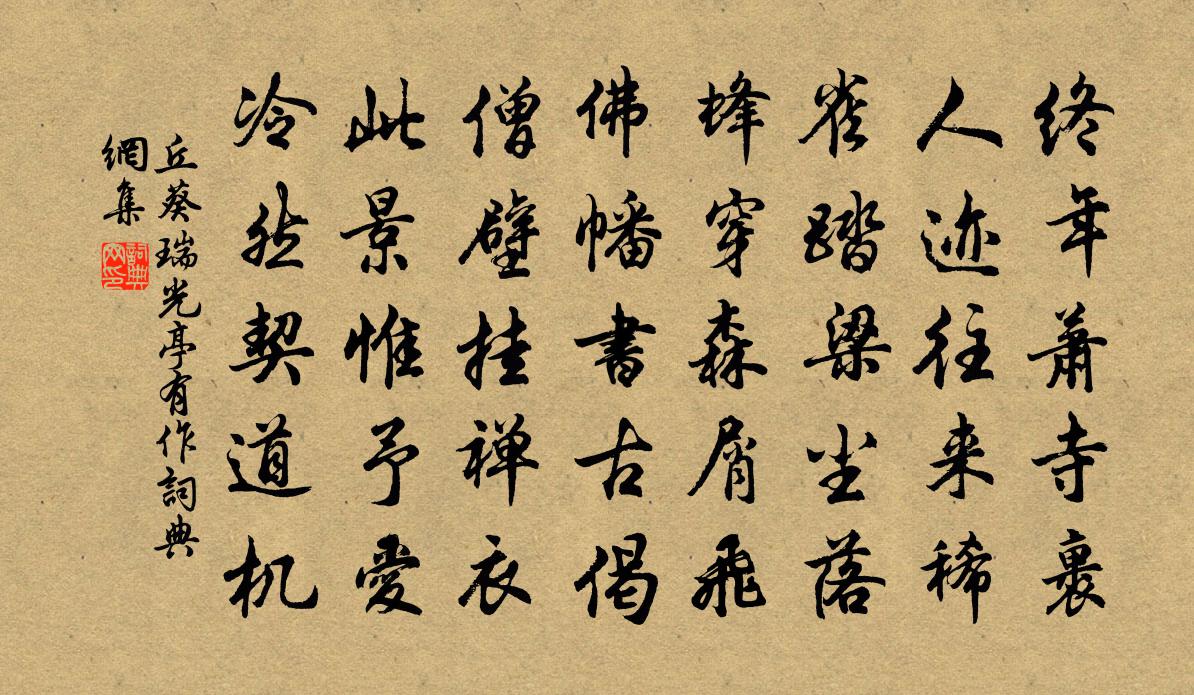 終年蕭寺裏
人迹往来稀
雀踏梁尘落
蜂穿森屑飛
佛幡書古偈
僧壁挂禅衣
此景惟予愛
冷然契道机
丘葵瑞光亭有作詞典
網集
詞典
网印